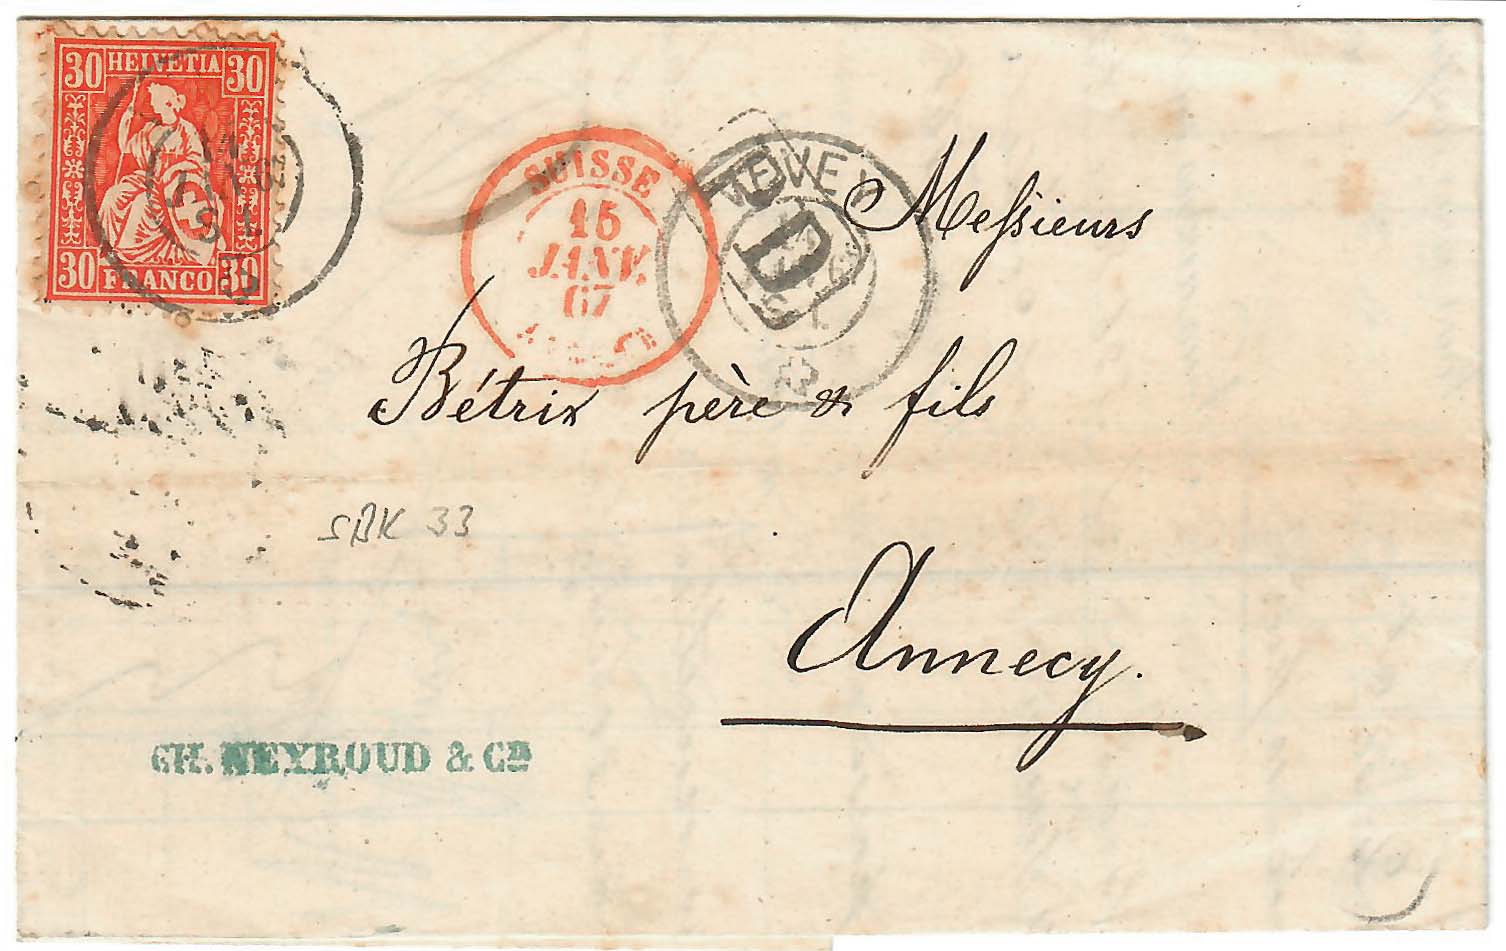 30 HELVETIA 30
30 FRANCO 30
SUISSE
15
JANV.
67
VEVEY
PD
Messieurs
Bétrix père & fils
SBK 33
Annecy.
CH. NEYROUD & CIE